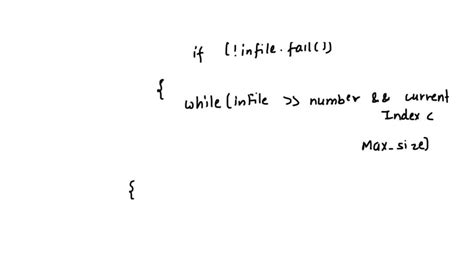 if (!infile.fail())
{
while(infile >> number && current
Index <
Max_size)
{